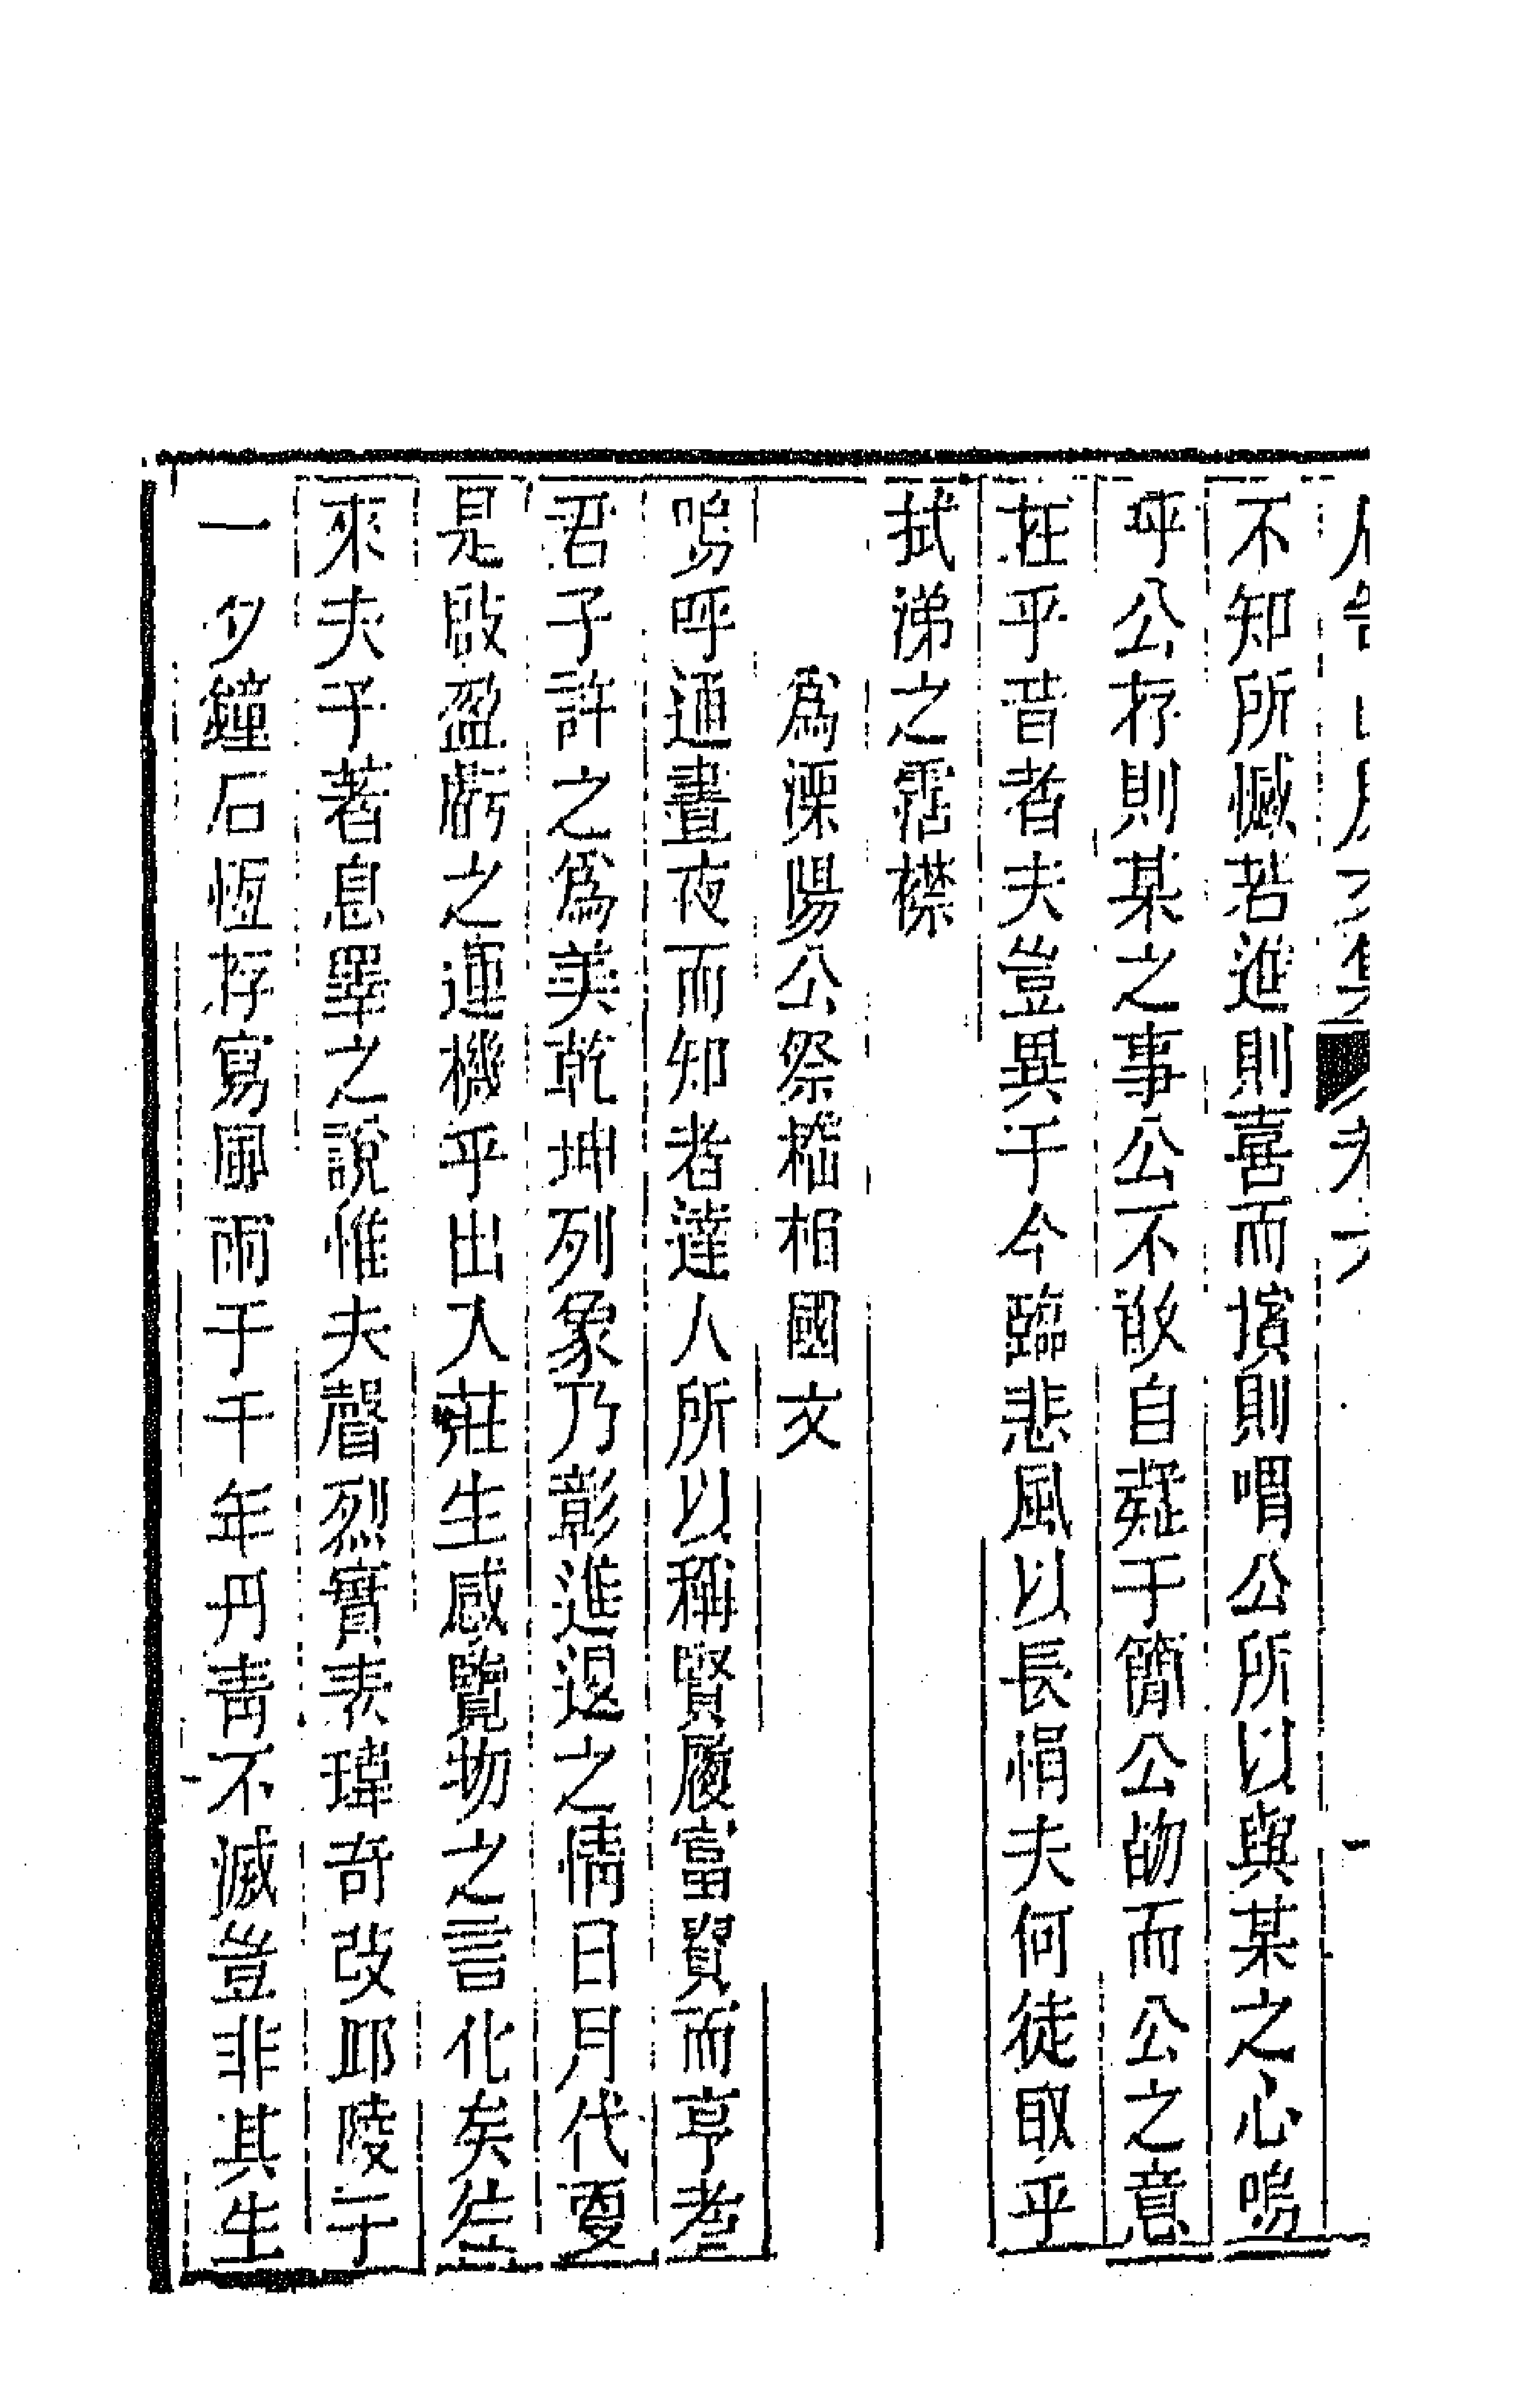 不知所憾若進則喜而擯則喟公所以與某之心嗚
呼公存則某之事公不敢自疑于簡公歾而公之意
在乎昔者夫豈異于今臨悲風以長悁夫何徒取乎
拭涕之霑襟
爲溧陽公祭嵇相國文
嗚呼通晝夜而知者達人所以稱賢履富貴而享耆
君子許之爲美乾坤列象乃彰進退之情日月代更
是啟盈虧之運機乎出入莊生感覽物之言化矣徃
來夫子著息睪之說惟夫聲烈實表瑋奇攷邱陵于
一夕鐘石恆存寫風雨于千年丹靑不滅豈非其生